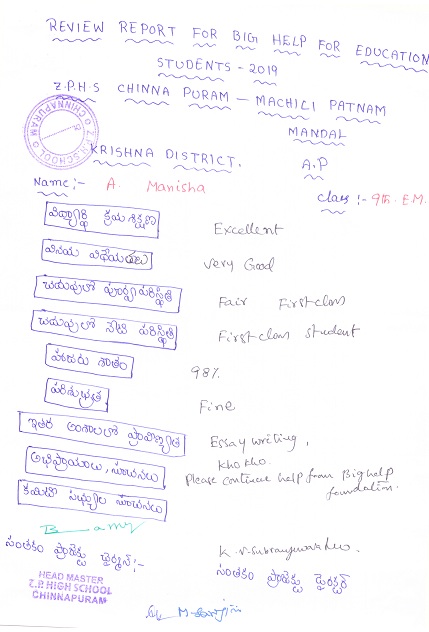 REVIEW REPORT FOR BIG HELP FOR EDUCATION
STUDENTS - 2019
Z.P.H.S CHINNA PURAM - MACHILI PATNAM
MANDAL
KRISHNA DISTRICT. A.P
Name:- A. Manisha class :- 9th. E.M.
విద్యార్థి క్రమశిక్షణ Excellent
వినయ విధేయతలు very Good
చదువులో పూర్వపు పరిస్థితి Fair First class
చదువులో నేటి పరిస్థితి First class student
హాజరు శాతం 98%
పరిశుభ్రత Fine
ఇతర అంశాలలో ప్రావీణ్యత Essay writing,
Kho kho.
అభిప్రాయాలు, సూచనలు Please continue help from Big help
foundation.
కమిటీ సభ్యుల సూచనలు
సంతకం ప్రాజెక్టు చైర్మన్:- సంతకం ప్రాజెక్టు డైరెక్టర్
HEAD MASTER
Z.P. HIGH SCHOOL
CHINNAPURAM